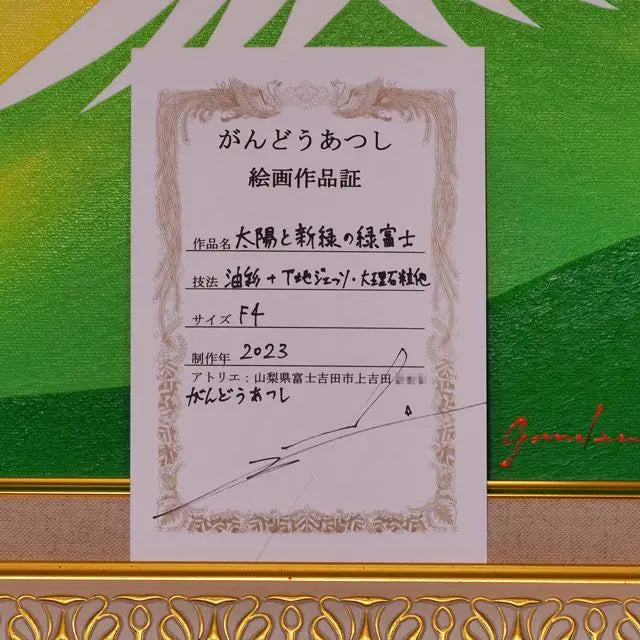 がんどうあつし
絵画作品証
作品名 太陽と新緑の緑富士
技法 油彩+下地ジェッソ・大理石粒他
サイズ F4
制作年 2023
アトリエ：山梨県富士吉田市上吉田
がんどうあつし